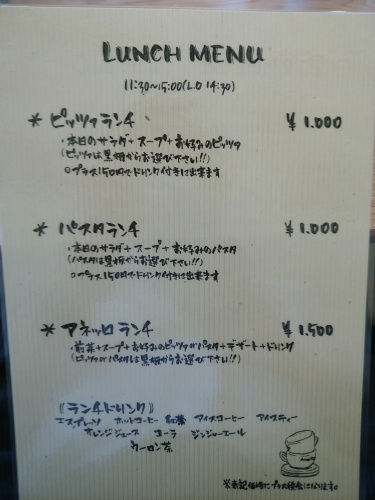 LUNCH MENU
11:30~15:00(L.O 14:30)
* ピッツァランチ ¥1.000
・本日のサラダ+スープ+お好みのピッツァ
(ピッツァは黒板からお選び下さい!!)
○プラス150円でドリンク付きに出来ます
* パスタランチ ¥1.000
・本日のサラダ+スープ+お好みのパスタ
(パスタは黒板からお選び下さい!!)
○プラス150円でドリンク付きに出来ます
* アネッロランチ ¥1.500
・前菜+スープ+お好みのピッツァorパスタ+デザート+ドリンク
(ピッツァorパスタは黒板からお選び下さい!!)
《ランチドリンク》
エスプレッソ ホットコーヒー 紅茶 アイスコーヒー アイスティー
オレンジジュース コーラ ジンジャーエール
ウーロン茶
※表記価格にプラス税金になります。